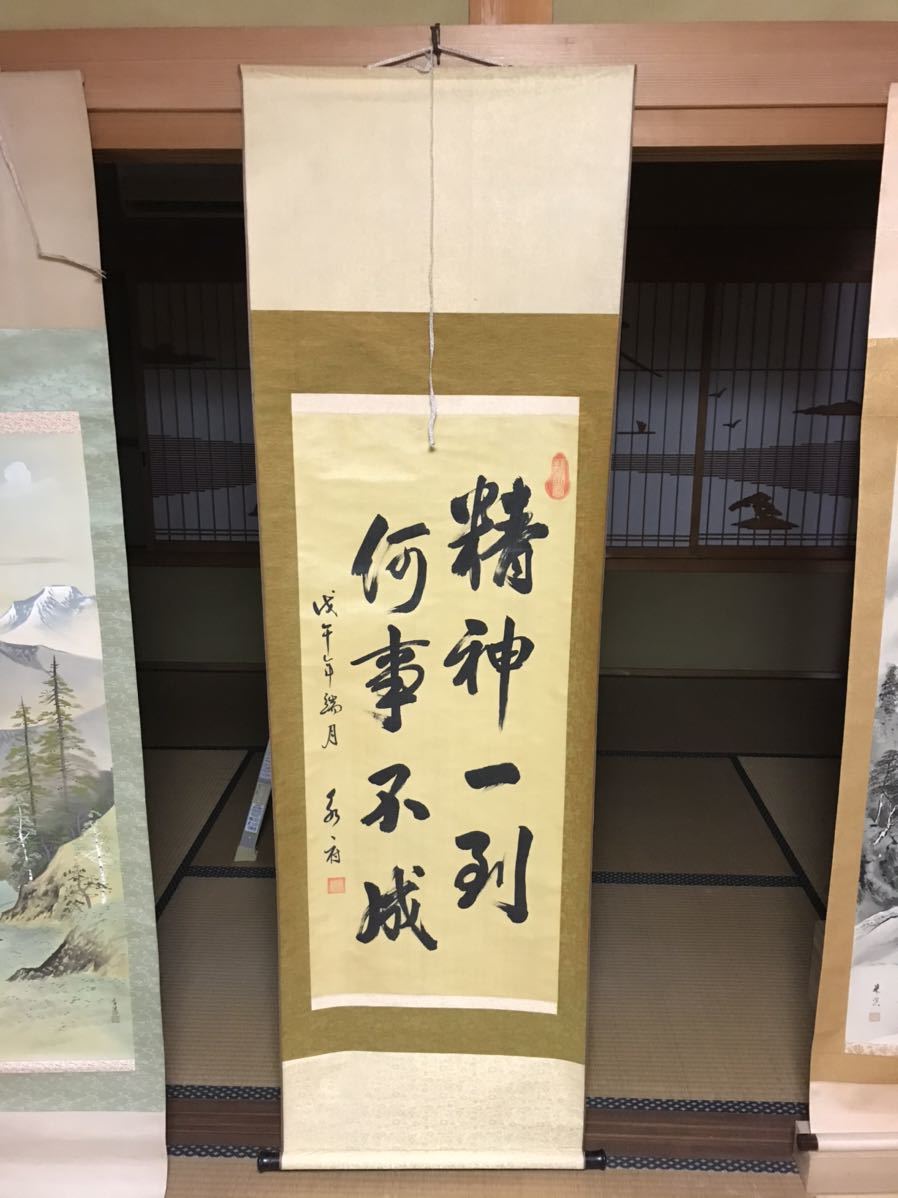 精神一到
何事不成
戊午年端月